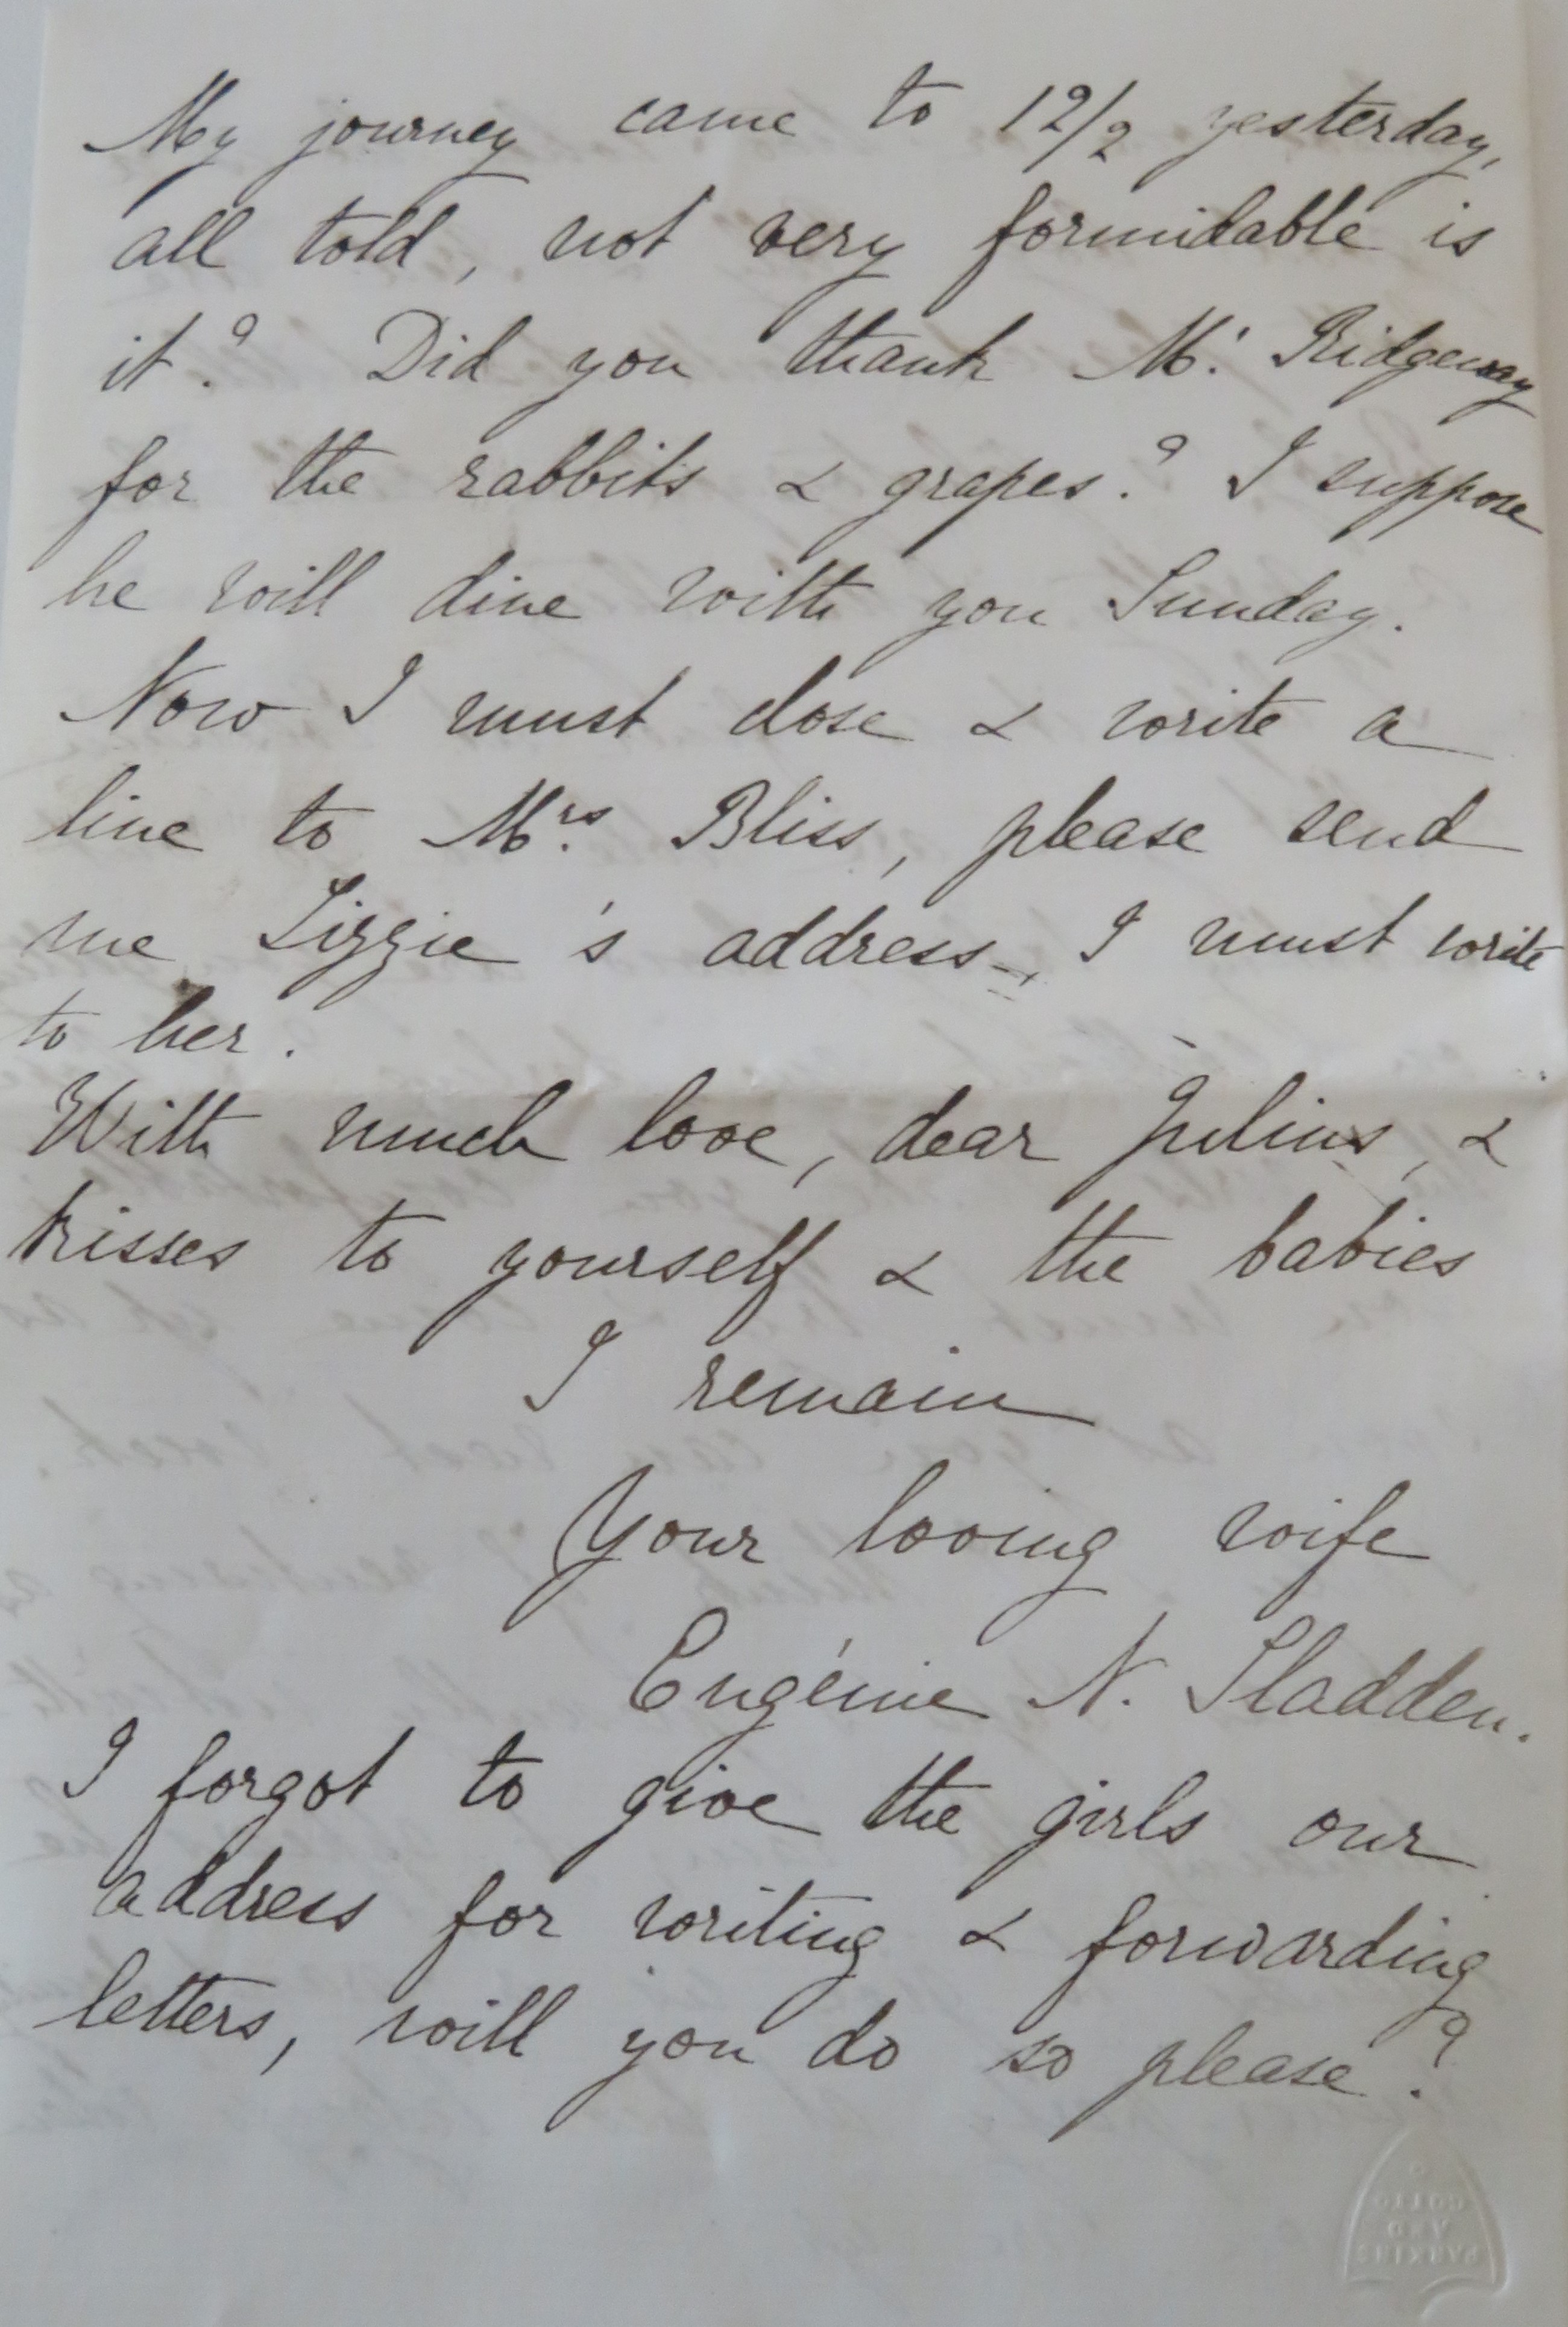 My journey came to 12/2 yesterday,
all told, not very formidable is
it? Did you thank Mr. Ridgeway
for the rabbits & grapes? I suppose
he will dine with you Sunday.
Now I must close & write a
line to Mrs. Bliss, please send
me Lizzie's address, I must write
to her.
With much love, dear Julius, &
kisses to yourself & the babies
I remain
Your loving wife
Eugénie N. Sladden.
I forgot to give the girls our
address for writing & forwarding
letters, will you do so please?
PARKINS
AND
GOTTO